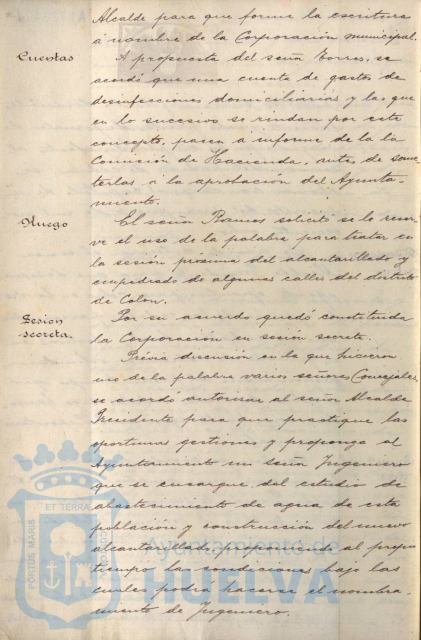 Alcalde para que forme la escritura
á nombre de la Corporación municipal.
Cuentas
A propuesta del señor Torres, se
acordó que una cuenta de gastos de
desinfecciones domiciliarias y las que
en lo sucesivo se rindan por este
concepto, pasen á informe de la la
Comisión de Hacienda, antes de some-
terlas á la aprobación del Ayunta-
miento.
Ruego
El señor Ramos solicitó se le reser-
ve el uso de la palabra para tratar en
la sesión próxima del alcantarillado y
empedrado de algunas calles del distrito
de Colon.
Sesion
secreta.
Por su acuerdo quedó constituida
la Corporación en sesión secreta.
Prévia discusión en la que hicieron
uso de la palabra varios señores Concejales,
se acordó autorizar al señor Alcalde
Presidente para que practique las
oportunas gestiones y proponga al
Ayuntamiento un señor Ingeniero
que se encargue del estudio de
abastecimiento de agua de esta
población y construcción del nuevo
alcantarillado, proponiendo al propio
tiempo las condiciones bajo las
cuales podrá hacerse el nombra-
miento de Ingeniero.
PORTUS MARIS
ET TERRA
CUSTODIA
Ayuntamiento de
HUELVA